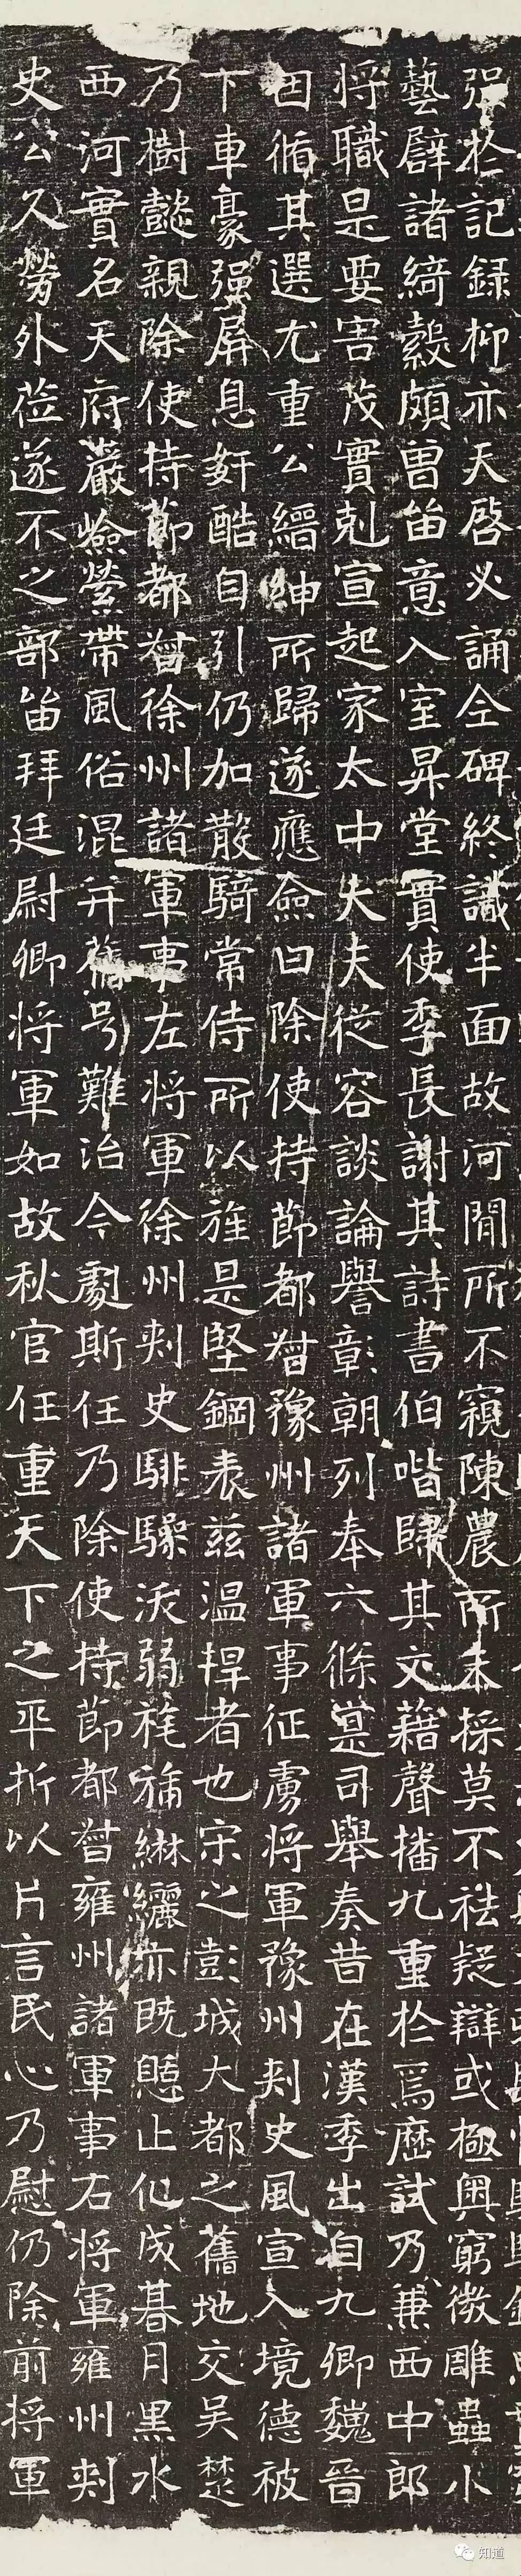 強於記録柳亦天啓必誦仝碑終識半面故河間所不窺陳農所未採莫不袪疑辯或極奧窮微雕蟲小
藝譬諸綺縠頗曾留意入室昇堂實使季長謝其詩書伯喈歸其文藉聲播九重於焉歷試乃兼西中郎
將職是要害茂實剋宣起家太中大夫從容談論譽彰朝列奉六條是司舉奏昔在漢季出自九卿魏晉
因循其選尤重公縉紳所歸遂應僉曰除使持節都督豫州諸軍事征虜將軍豫州刺史風宣入境德被
下車豪强屏息奸酷自引仍加散騎常侍所以旌是堅鋼表兹温捍者也宋之彭城大都之舊地交吴楚
乃樹懿親除使持節都督徐州諸軍事左將軍徐州刺史騑驂沃弱旄旆綝纚亦既憩止化成朞月黑水
西河實名天府巖嶮縈帶風俗混并舊号難治今劇斯任乃除使持節都督雍州諸軍事右將軍雍州刺
史公久勞外莅遂不之部留拜廷尉卿將軍如故秋官任重天下之平折以片言民心乃慰仍除前將軍
知道